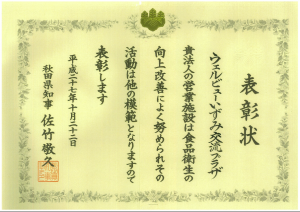 表彰状
ウェルビューいずみ交流プラザ
貴法人の営業施設は食品衛生の
向上改善によく努められその
活動は他の模範となりますので
表彰します
平成二十七年十月二十二日
秋田県知事 佐竹敬久